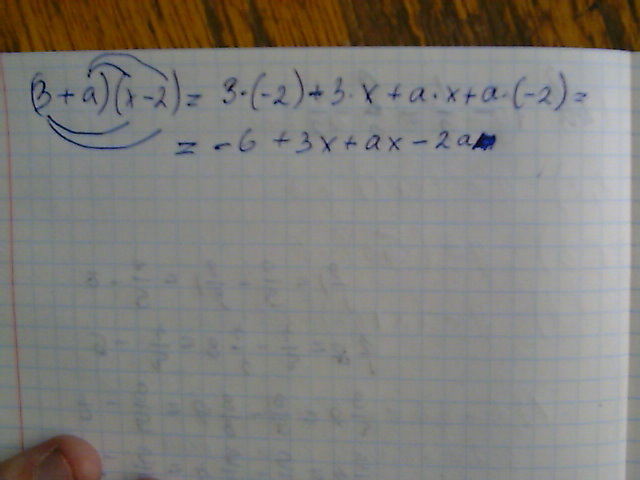 (3+a)(x-2)= 3·(-2)+3·x+a·x+a·(-2)=
= -6+3x+ax-2a